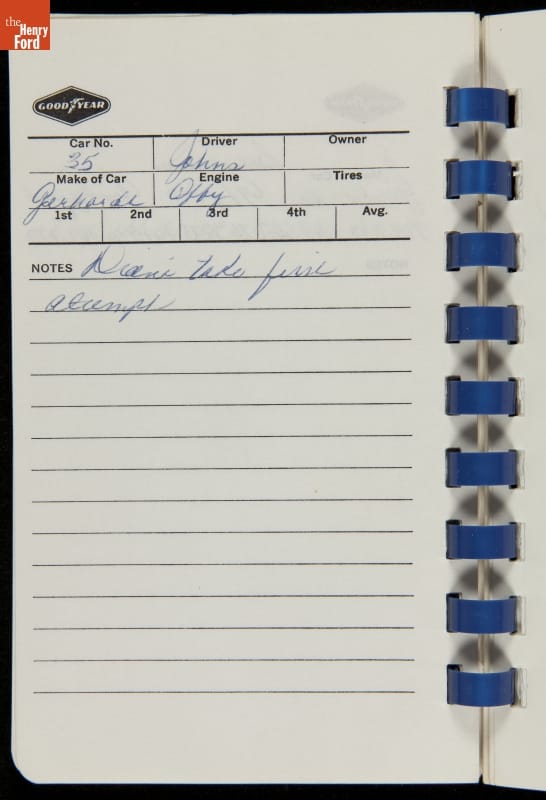 the Henry Ford
GOODYEAR
Car No. Driver Owner
35 Johns
Make of Car Engine Tires
Gerhardt Offy
1st 2nd 3rd 4th Avg.
NOTES Didn't take first
atempt